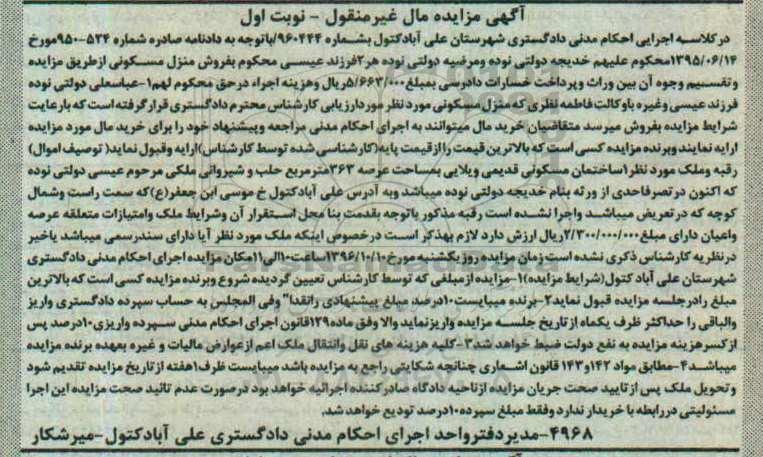 آگهی مزایده مال غیرمنقول - نوبت اول
در کلاسه اجرایی احکام مدنی دادگستری شهرستان علی آبادکتول بشماره ۹۶۰۴۴۴/باتوجه به دادنامه صادره شماره ۵۳۴-۹۵۰مورخ
۱۳۹۵/۰۶/۱۴محکوم علیهم خدیجه دولتی نوده ومرضیه دولتی نوده هر۲فرزند عیسی محکوم بفروش منزل مسکونی ازطریق مزایده
وتقسیم وجوه آن بین وراث وپرداخت خسارات دادرسی بمبلغ۵/۶۶۳/۰۰۰ریال وهزینه اجراء درحق محکوم لهم۱-عباسعلی دولتی نوده
فرزند عیسی وغیره باوکالت فاطمه نظری که منزل مسکونی مورد نظر موردارزیابی کارشناس محترم دادگستری قرار گرفته است که بارعایت
شرایط مزایده بفروش میرسد متقاضیان خرید مال میتوانند به اجرای احکام مدنی مراجعه وپیشنهاد خود را برای خرید مال مورد مزایده
ارایه نمایند وبرنده مزایده کسی است که بالاترین قیمت را ازقیمت پایه(کارشناسی شده توسط کارشناس)ارایه وقبول نماید( توصیف اموال)
رقبه وملک مورد نظر۱ساختمان مسکونی قدیمی ویلایی بمساحت عرصه ۳۶۳مترمربع حلب و شیروانی ملکی مرحوم عیسی دولتی نوده
که اکنون در تصرفاحدی از ورثه بنام خدیجه دولتی نوده میباشد وبه آدرس علی آبادکتول خ موسی ابن جعفر(ع)که سمت راست وشمال
کوچه که در تعریض میباشد واجرا نشده است رقبه مذکور باتوجه بقدمت بنا محل استقرار آن وشرایط ملک وامتیازات متعلقه عرصه
واعیان دارای مبلغ۲/۳۰۰/۰۰۰/۰۰۰ریال ارزش دارد لازم بهذکر است درخصوص اینکه ملک مورد نظر آیا دارای سندرسمی میباشد یاخیر
در نظریه کارشناس ذکری نشده است زمان مزایده روز یکشنبه مورخ۱۳۹۶/۱۰/۱۰ساعت۱۰الی۱۱مکان مزایده اجرای احکام مدنی دادگستری
شهرستان علی آباد کتول(شرایط مزایده)۱-مزایده ازمبلغی که توسط کارشناس تعیین گردیده شروع وبرنده مزایده کسی است که بالاترین
مبلغ رادرجلسه مزایده قبول نماید۲-برنده میبایست۱۰درصد مبلغ پیشنهادی رانقدا" وفی المجلس به حساب سپرده دادگستری واریز
والباقی را حداکثر ظرف یکماه از تاریخ جلسه مزایده واریز نماید والا وفق ماده۱۲۹قانون اجرای احکام مدنی سپرده واریزی۱۰درصد پس
از کسر هزینه مزایده به نفع دولت ضبط خواهد شد۳-کلیه هزینه های نقل وانتقال ملک اعم ازعوارض مالیات و غیره بعهده برنده مزایده
میباشد۴-مطابق مواد ۱۴۲و۱۴۳ قانون اشعاری چنانچه شکایتی راجع به مزایده باشد میبایست ظرف۱هفته از تاریخ مزایده تقدیم شود
وتحویل ملک پس از تایید صحت جریان مزایده ازناحیه دادگاه صادرکننده اجرائیه خواهد بود درصورت عدم تائید صحت مزایده این اجرا
مسئولیتی دررابطه با خریدار ندارد وفقط مبلغ سپرده۱۰درصد تودیع خواهد شد.
۴۹۶۸-مدیردفترواحد اجرای احکام مدنی دادگستری علی آبادکتول-میرشکار